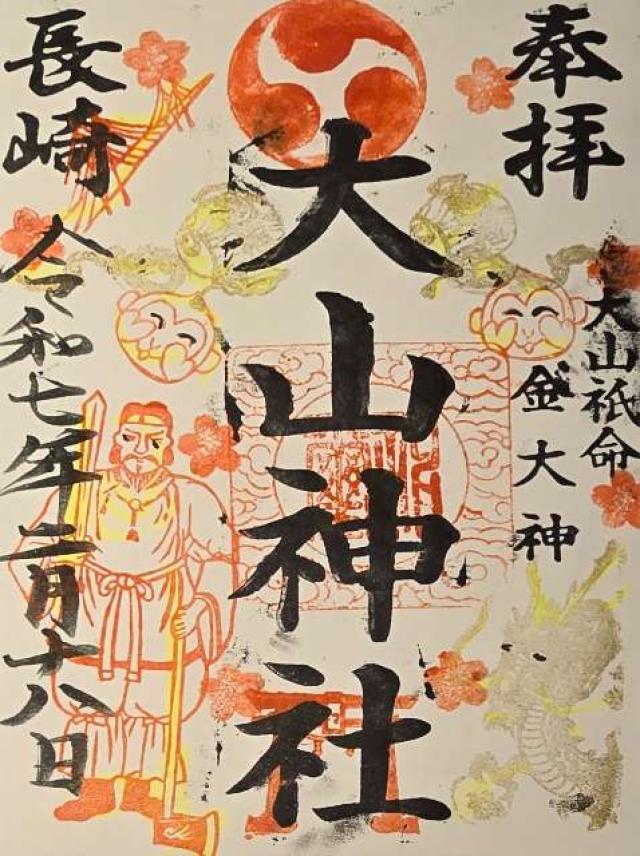 奉拝
大山祇命
金大神
大山神社
長崎
令和七年二月十八日